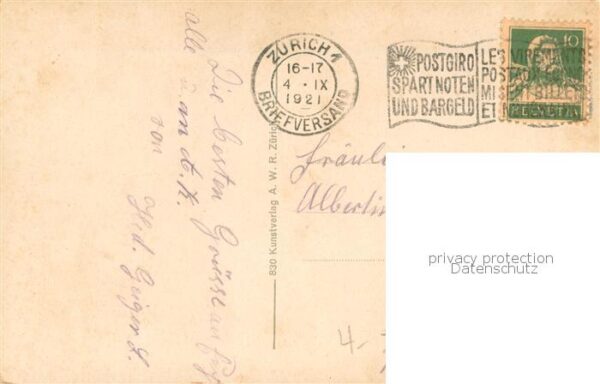 ZÜRICH 1
16-17
4 · IX
1921
BRIEFVERSAND
POSTGIRO
SPART NOTEN
UND BARGELD
LES VIREMENTS
POSTAUX
ET
10
HELVETIA
Die besten
alle
von
Hed. Geiger
830 Kunstverlag A. W. R. Zürich
Fräulei
Albertin
4.
privacy protection
Datenschutz